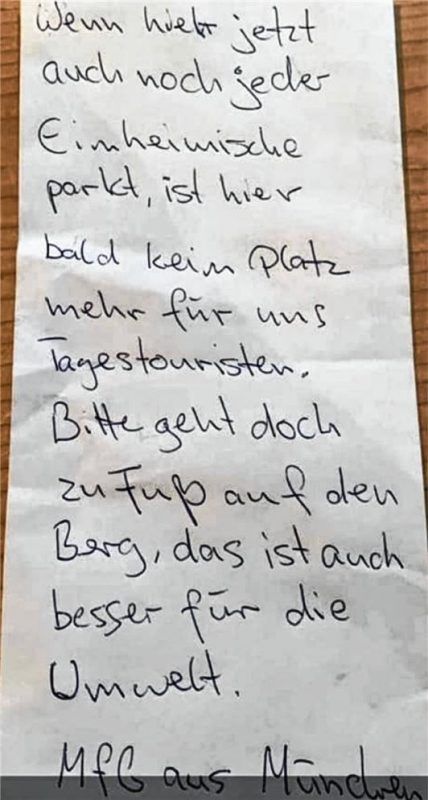 Wenn hier jetzt
auch noch jeder
Einheimische
parkt, ist hier
bald kein Platz
mehr für uns
Tagestouristen.
Bitte geht doch
zu Fuß auf den
Berg, das ist auch
besser für die
Umwelt.
MfG aus München